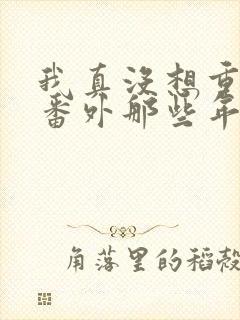 我真没想重
番外那些年
角落里的稻壳